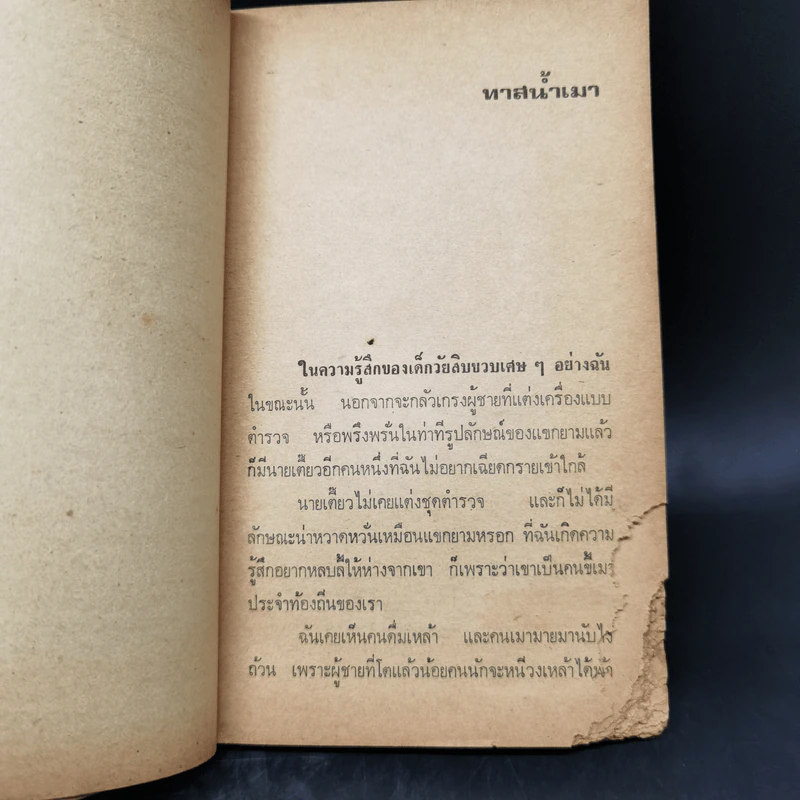 ทาสน้ำเมา
ในความรู้สึกของเด็กวัยสิบขวบเศษ ๆ อย่างฉัน
ในขณะนั้น นอกจากจะกลัวเกรงผู้ชายที่แต่งเครื่องแบบ
ตำรวจ หรือพรึงพรั่นในท่าทีรูปลักษณ์ของแขกยามแล้ว
ก็มีนายเตี๊ยวอีกคนหนึ่งที่ฉันไม่อยากเฉียดกรายเข้าใกล้
นายเตี๊ยวไม่เคยแต่งชุดตำรวจ และก็ไม่ได้มี
ลักษณะน่าหวาดหวั่นเหมือนแขกยามหรอก ที่ฉันเกิดความ
รู้สึกอยากหลบลี้ให้ห่างจากเขา ก็เพราะว่าเขาเป็นคนขี้เมา
ประจำท้องถิ่นของเรา
ฉันเคยเห็นคนดื่มเหล้า และคนเมามายมานับไม่
ถ้วน เพราะผู้ชายที่โตแล้วน้อยคนนักจะหนีวงเหล้าได้